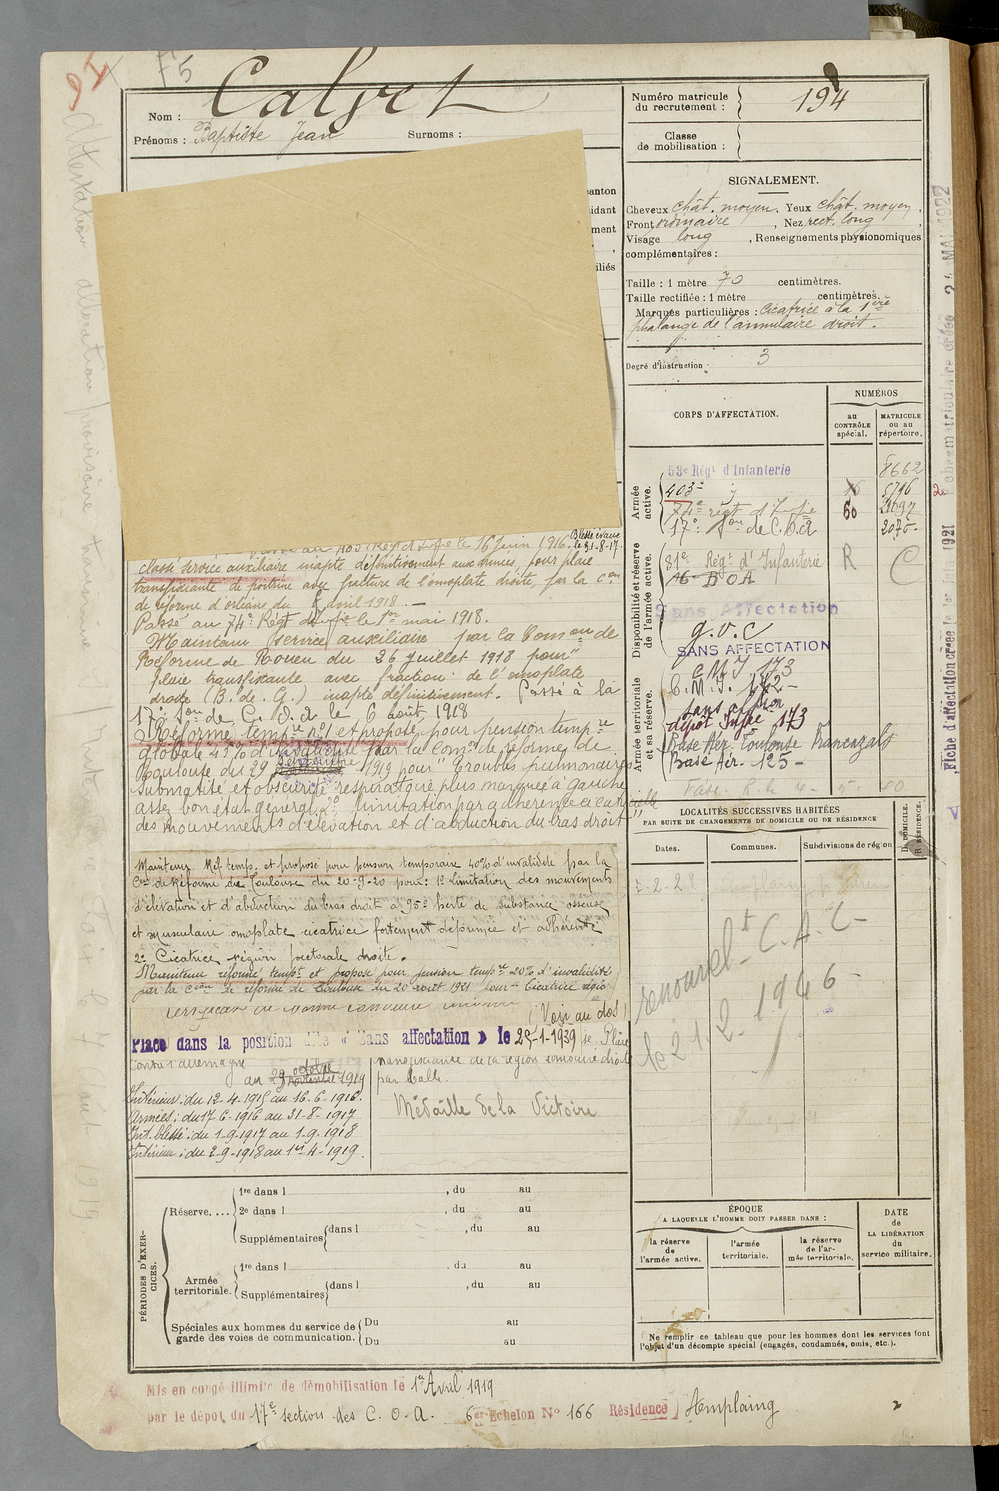 F5
Nom : Calvet
Prénoms : Baptiste Jean Surnoms :
Numéro matricule
du recrutement : 194
Classe
de mobilisation :
SIGNALEMENT.
Cheveux chât. moyen. Yeux chât. moyen,
Front ordinaire, Nez rect. long,
Visage long, Renseignements physionomiques
complémentaires :
Taille : 1 mètre 70 centimètres.
Taille rectifiée : 1 mètre centimètres.
Marques particulières : Cicatrice à la 1ère
phalange de l'annulaire droit.
Degré d'instruction : 3
anton
idant
ment
iliés
CORPS D'AFFECTATION.
NUMÉROS
au
CONTRÔLE
spécial.
MATRICULE
ou au
répertoire.
Armée
active.
53e Régt d'Infanterie 8662
403e 5796
74e regt d'Infie 60
17e Son de C.O.A 2075
Disponibilité et réserve
de l'armée active.
81e Régt d'Infanterie R C
COA
Sans Affectation
G.V.C
SANS AFFECTATION
Armée territoriale
et sa réserve.
CMI 173
C.M.I. 172
Sans affon
dépôt Infie 173
Base Aér. Toulouse Francazals
Base Aér. 125
passé au 403e Régt d'Infie le 16 Juin 1916. Blessé évacué
le 31-8-17.
classé service auxiliaire inapte définitivement aux armées, pour plaie
transfixiante de poitrine avec fracture de l'omoplate droite, par la Con
de réforme d'orléans du 8 avril 1918.
Passé au 74e Régt d'Infie le 1er mai 1918.
Maintenu service auxiliaire par la Comon de
Réforme de Rouen du 26 Juillet 1918 pour "
plaie transfixiante avec fraction de l'omoplate
droite (B. de. G.) inapte définitivement. Passé à la
17e Son de C.O.A le 6 août 1918
Réformé tempre n°1 et proposé pour pension tempre
globale 45% d'invalidité par la Comon de réforme de
Toulouse du 29 Septembre 1919 pour " 1° Troubles pulmonaires
submatité et obscurité respiratoire plus marquée à gauche
assez bon état général 2° limitation par adhérence cicatricielle
des mouvements d'élévation et d'abduction du bras droit "
Maintenu Réf. temp. et proposé pour pension temporaire 40% d'invalidité par la
Con de Réforme de Toulouse du 20-9-20 pour : 1° Limitation des mouvements
d'élévation et d'abduction du bras droit à 95° perte de substance osseuse
et musculaire omoplate cicatrice fortement déprimée et adhérente
2° Cicatrice région pectorale droite.
Maintenu réformé tempre et proposé pour pension tempre 20% d'invalidité
par la Cson de réforme de Toulouse du 20 août 1921 pour : Cicatrice régio
(Voir au dos)
Placé dans la position dite « Sans affectation » le 25-1-1939
Contre l'Allemagne
au 29 octobre 1919
Intérieur : du 12-4-1915 au 16-6-1916.
Armées : du 17-6-1916 au 31-8-1917
Int. blessé : du 1-9-1917 au 1-9-1918
Intérieur : du 2-9-1918 au 1er-4-1919.
Plaie
transfixiante de la région droite
par balle.
Médaille de la Victoire
LOCALITÉS SUCCESSIVES HABITÉES
PAR SUITE DE CHANGEMENTS DE DOMICILE OU DE RÉSIDENCE
Dates. Communes. Subdivisions de région D. DOMICILE. R. RÉSIDENCE.
renouvelt C.A.C
le 21.2.1946
ÉPOQUE
A LAQUELLE L'HOMME DOIT PASSER DANS :
la réserve
de
l'armée active.
l'armée
territoriale.
la réserve
de l'ar-
mée territoriale.
DATE
de
LA LIBÉRATION
du
service militaire.
Ne remplir ce tableau que pour les hommes dont les services font
l'objet d'un décompte spécial (engagés, condamnés, omis, etc.).
PÉRIODES D'EXER-
CICES.
Réserve. ... 1re dans l , du au
2e dans l , du au
Supplémentaires dans l , du au
Armée
territoriale. 1re dans l , du au
Supplémentaires dans l , du au
Spéciales aux hommes du service de
garde des voies de communication. Du au
Du au
Mis en congé illimité de démobilisation le 1er Avril 1919
par le dépôt du 17e section des C.O.A. 6e Echelon N° 166 Résidence Amplaing
Fiche d'affectation créée le 1er Juin 1921
24 MAI 1922